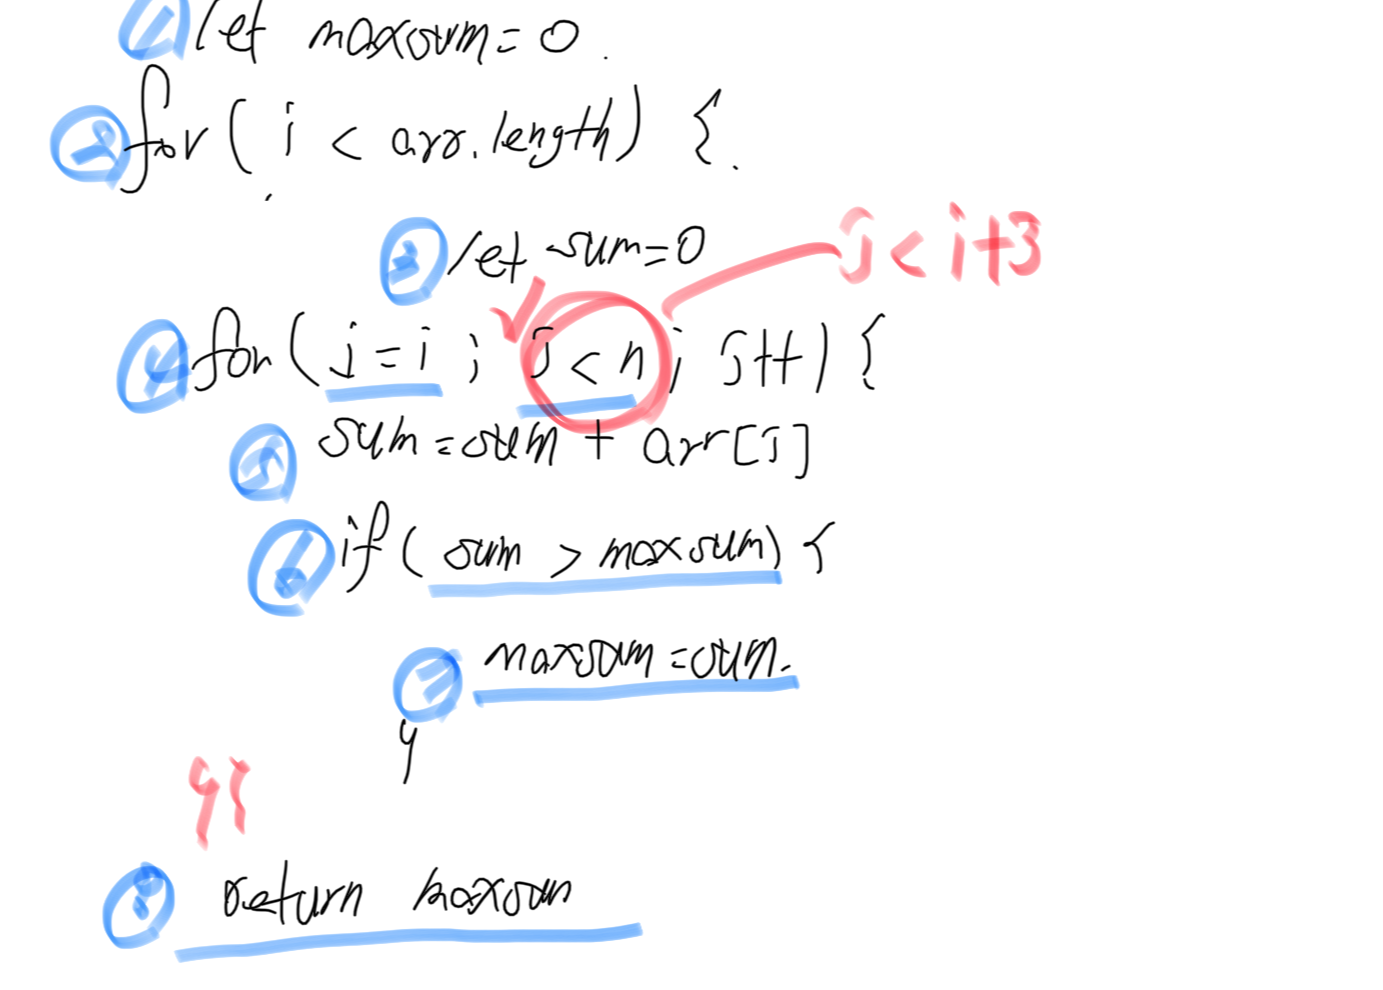 ① let maxsum = 0.
② for ( i < arr.length) {
③ let sum=0
j < i+3
④ for ( j = i ; j < n ; j++) {
⑤ sum = sum + arr[j]
⑥ if ( sum > maxsum) {
⑦ maxsum = sum.
}
}}
⑧ return maxsum